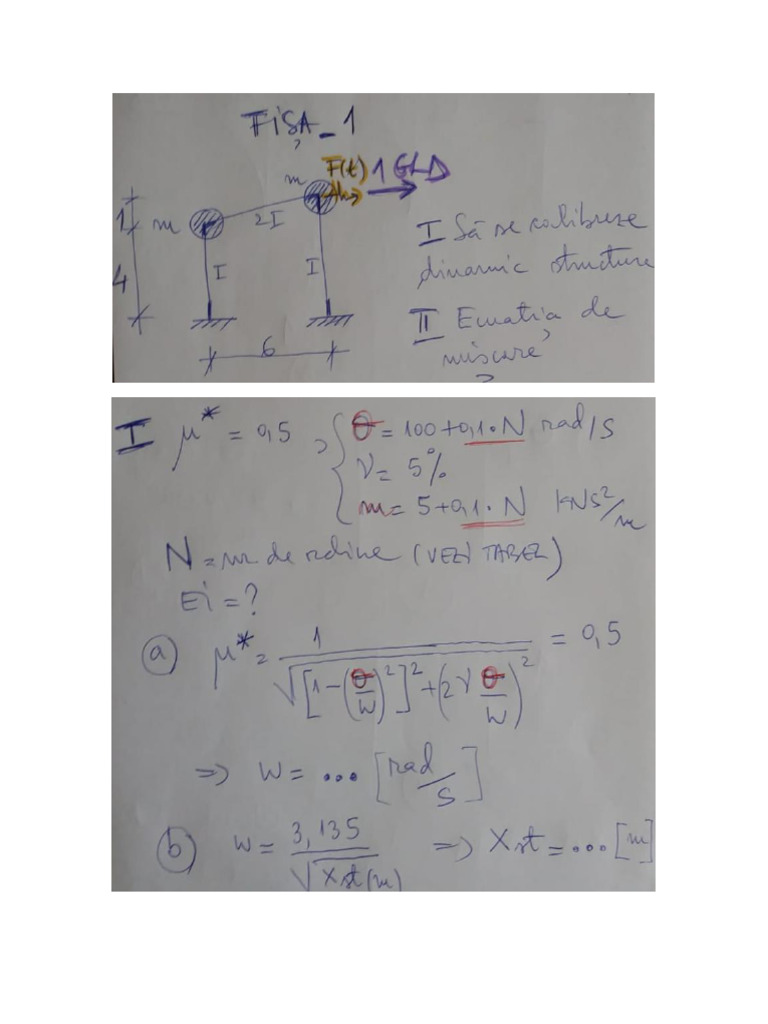 FIȘA_1
m F(t) 1 GLD
1 m 2I
4 I I
6
I Să se calibreze
dinamic structure
II Ecuatia de
mișcare
I μ* = 0,5 , θ = 100+0,1·N rad/s
ν = 5%
m = 5+0,1·N KNS²/m
N = nr de ordine (VEZI TABEL)
Ei = ?
a) μ* = 1 / √([1-(θ/W)²]² + (2ν θ/W)²) = 0,5
=> W = ... [rad/s]
b) W = 3,135 / √Xst(m) => Xst = ... [m]